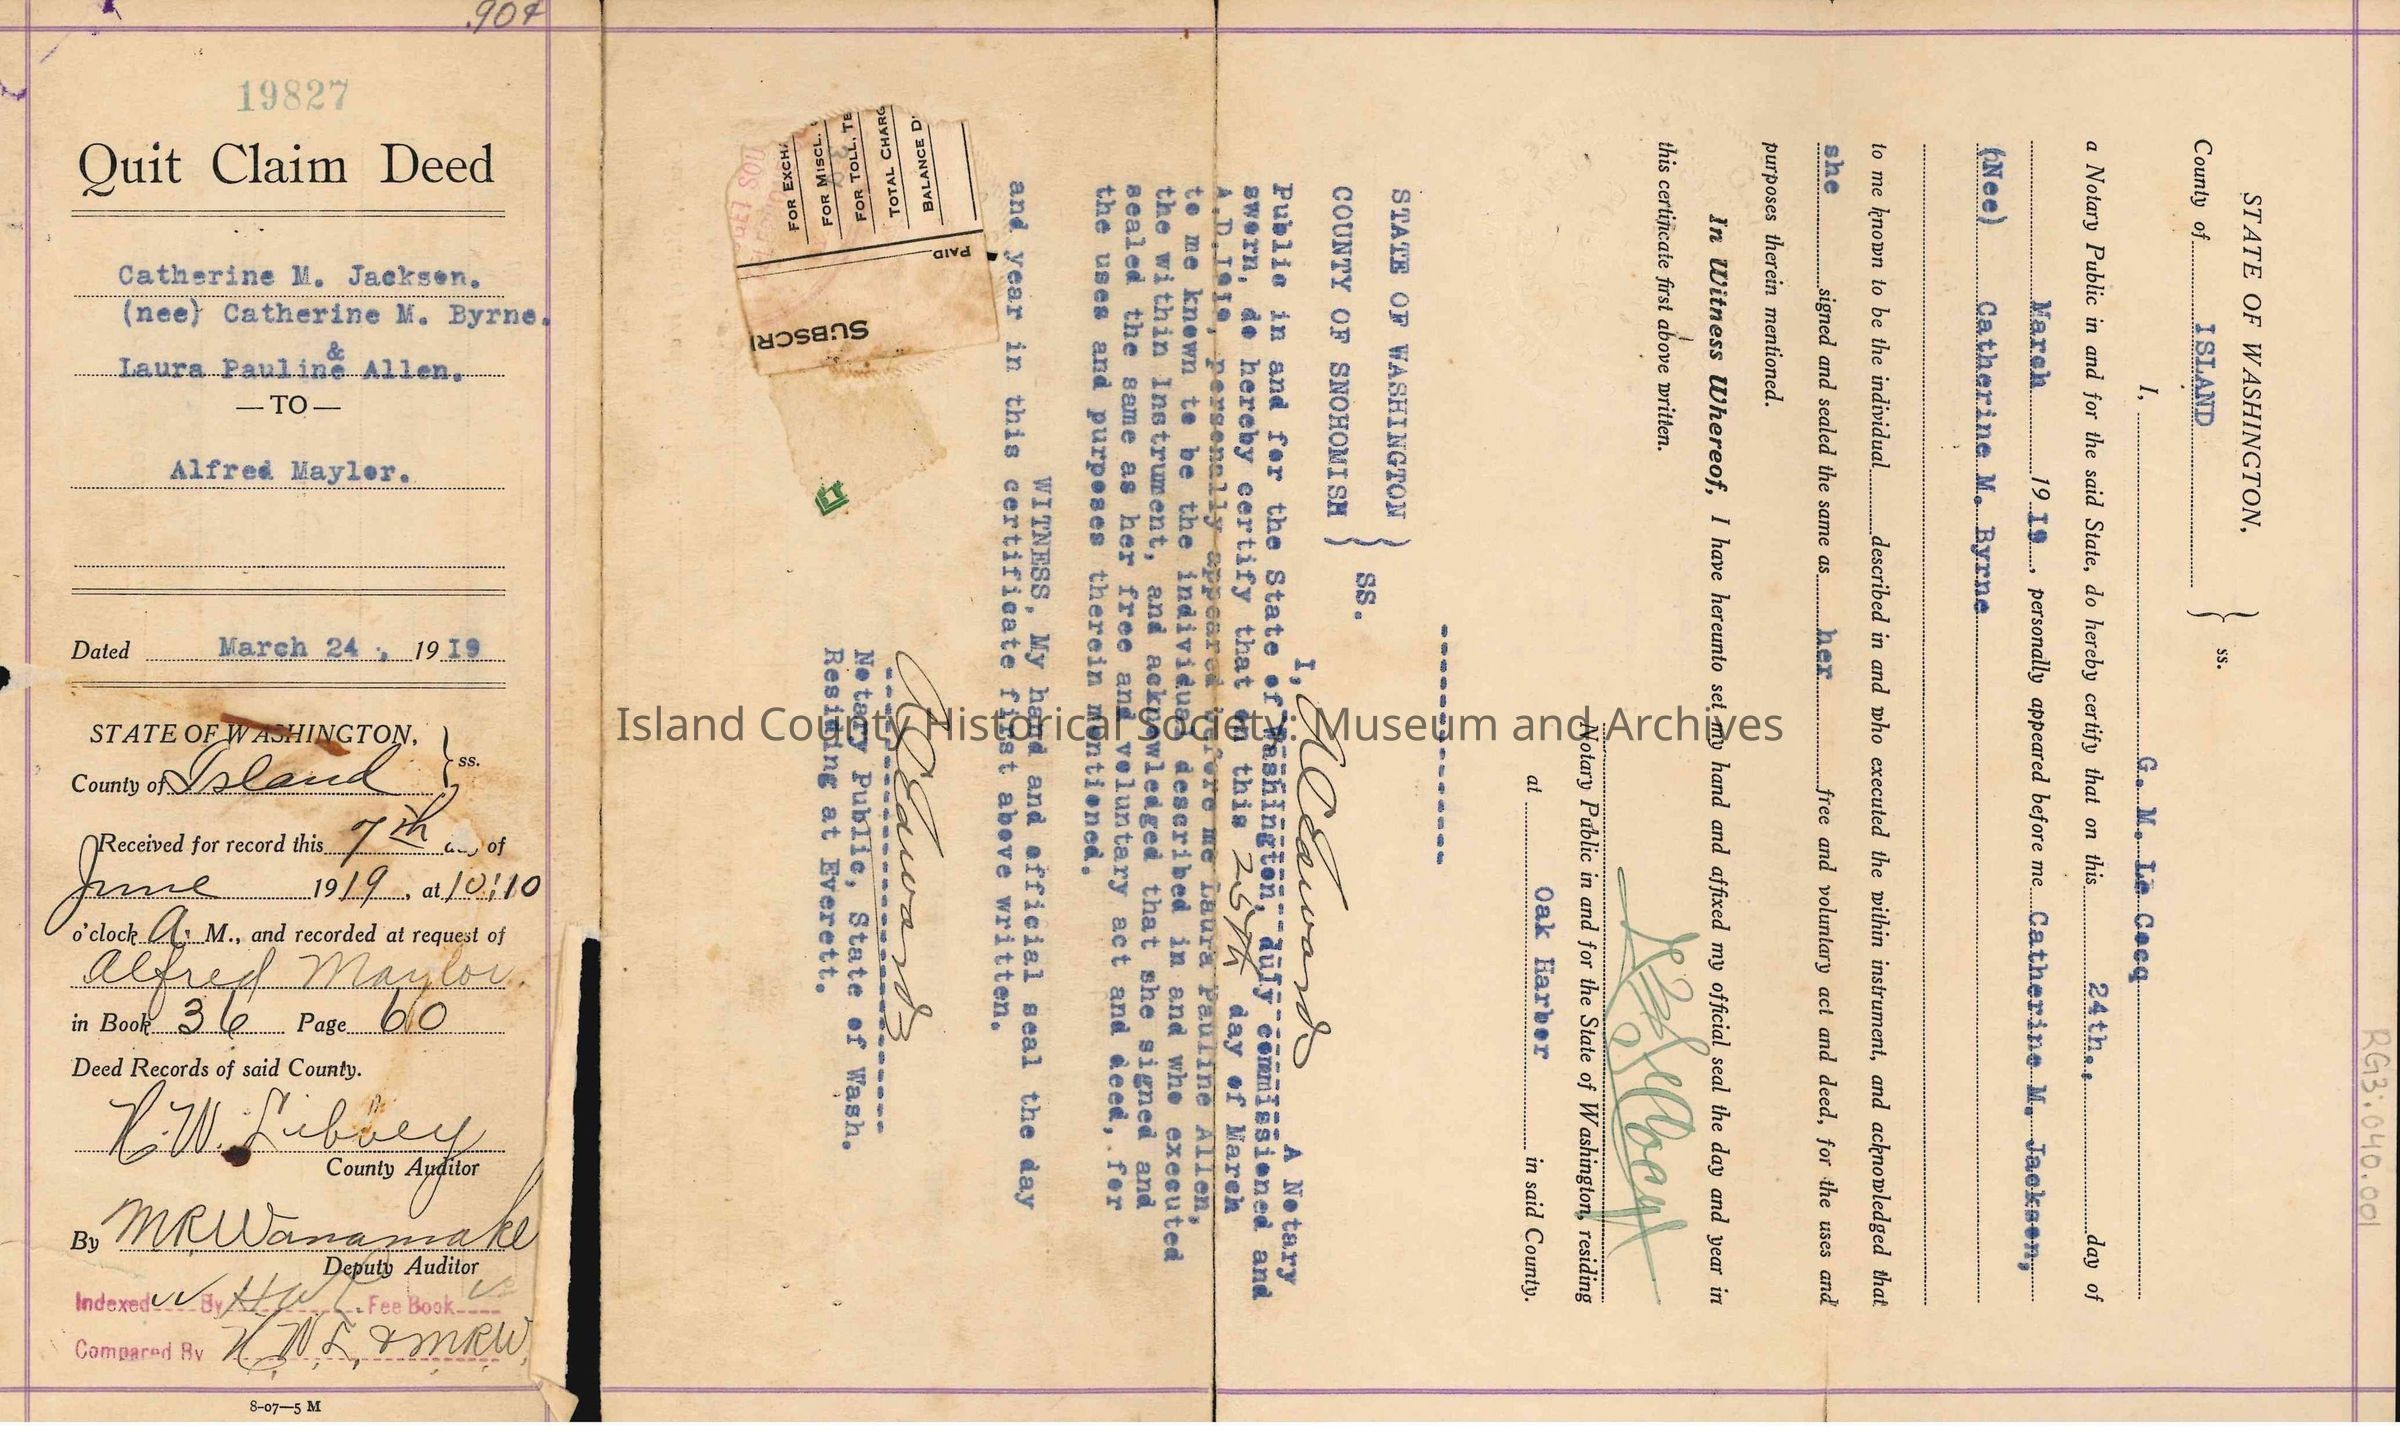 .90¢
19827
Quit Claim Deed
Catherine M. Jackson.
(nee) Catherine M. Byrne.
&
Laura Pauline Allen.
—TO—
Alfred Maylor.
Dated March 24, 1919
STATE OF WASHINGTON,
County of Island } ss.
Received for record this 7th day of
June 1919, at 10:10
o'clock A. M., and recorded at request of
Alfred Maylor.
in Book 36 Page 60
Deed Records of said County.
H. W. Libbey
County Auditor
By M R Wanamake
Deputy Auditor
Indexed By HWL Fee Book
Compared By H.W.L. & M.R.W.
8-07—5 M
STATE OF WASHINGTON,
County of ISLAND } ss.
I, G. M. Le Cocq
a Notary Public in and for the said State, do hereby certify that on this 24th., day of
March 19 I9, personally appeared before me Catherine M. Jackson,
(Nee) Catherine M. Byrne
to me known to be the individual described in and who executed the within instrument, and acknowledged that
she signed and sealed the same as her free and voluntary act and deed, for the uses and
purposes therein mentioned.
In Witness Whereof, I have hereunto set my hand and affixed my official seal the day and year in
this certificate first above written.
Notary Public in and for the State of Washington, residing
at Oak Harbor in said County.
STATE OF WASHINGTON
COUNTY OF SNOHOMISH } SS.
I, A Notary
Public in and for the State of Washington, duly commissioned and
sworn, do hereby certify that on this 25th day of March
A.D.I9I9, personally appeared before me Laura Pauline Allen,
to me known to be the individual described in and who executed
the within instrument, and acknowledged that she signed and
sealed the same as her free and voluntary act and deed, for
the uses and purposes therein mentioned.
WITNESS, My hand and official seal the day
and year in this certificate first above written.
Notary Public, State of Wash.
Residing at Everett.
BALANCE D
TOTAL CHARG
FOR TOLL, TE
FOR MISCL.
FOR EXCHA
PAID
SUBSCRI
RG3.040.001
Island County Historical Society: Museum and Archives